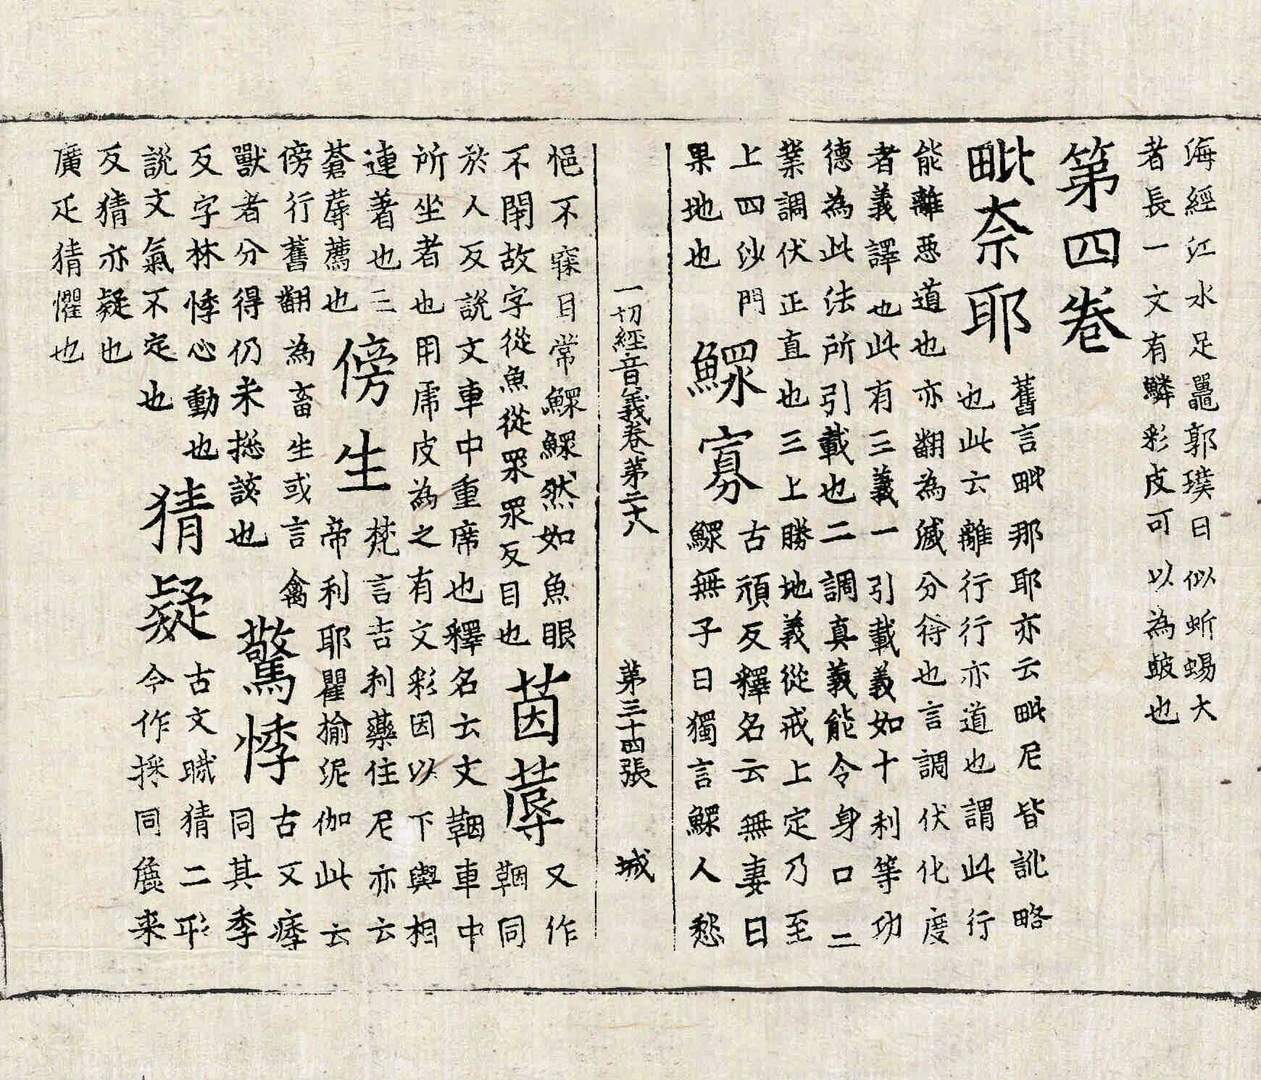 海經江水足鼉郭璞曰似蜥蜴大
者長一文有鱗彩皮可以為皷也
第四卷
毗奈耶
舊言毗那耶亦云毗尼皆訛略
也此云離行行亦道也謂此行
能離惡道也亦翻為滅分得也言調伏化度
者義譯也此有三義一引載義如十利等功
德為此法所引載也二調真義能令身口二
業調伏正直也三上勝地義從戒上定乃至
上四沙門
果地也
鰥寡
古頑反釋名云無妻曰
鰥無子曰獨言鰥人愁
一切經音義卷第二十八 第三十四張 城
悒不寐目常鰥鰥然如魚眼
不閇故字從魚從眾眾反目也
茵蓐
又作
鞇同
於人反說文車中重席也釋名云文鞇車中
所坐者也用虎皮為之有文彩因以下輿相
連著也三
蒼蓐薦也
傍生
梵言吉利藥住尼亦云
帝利耶瞿揄泥伽此云
傍行舊翻為畜生或言禽
獸者分得仍未揔該也
驚悸
古文痵
同其季
反字林悸心動也
說文氣不定也
猜疑
古文猜二形
今作採同麁来
反猜亦疑也
廣疋猜懼也